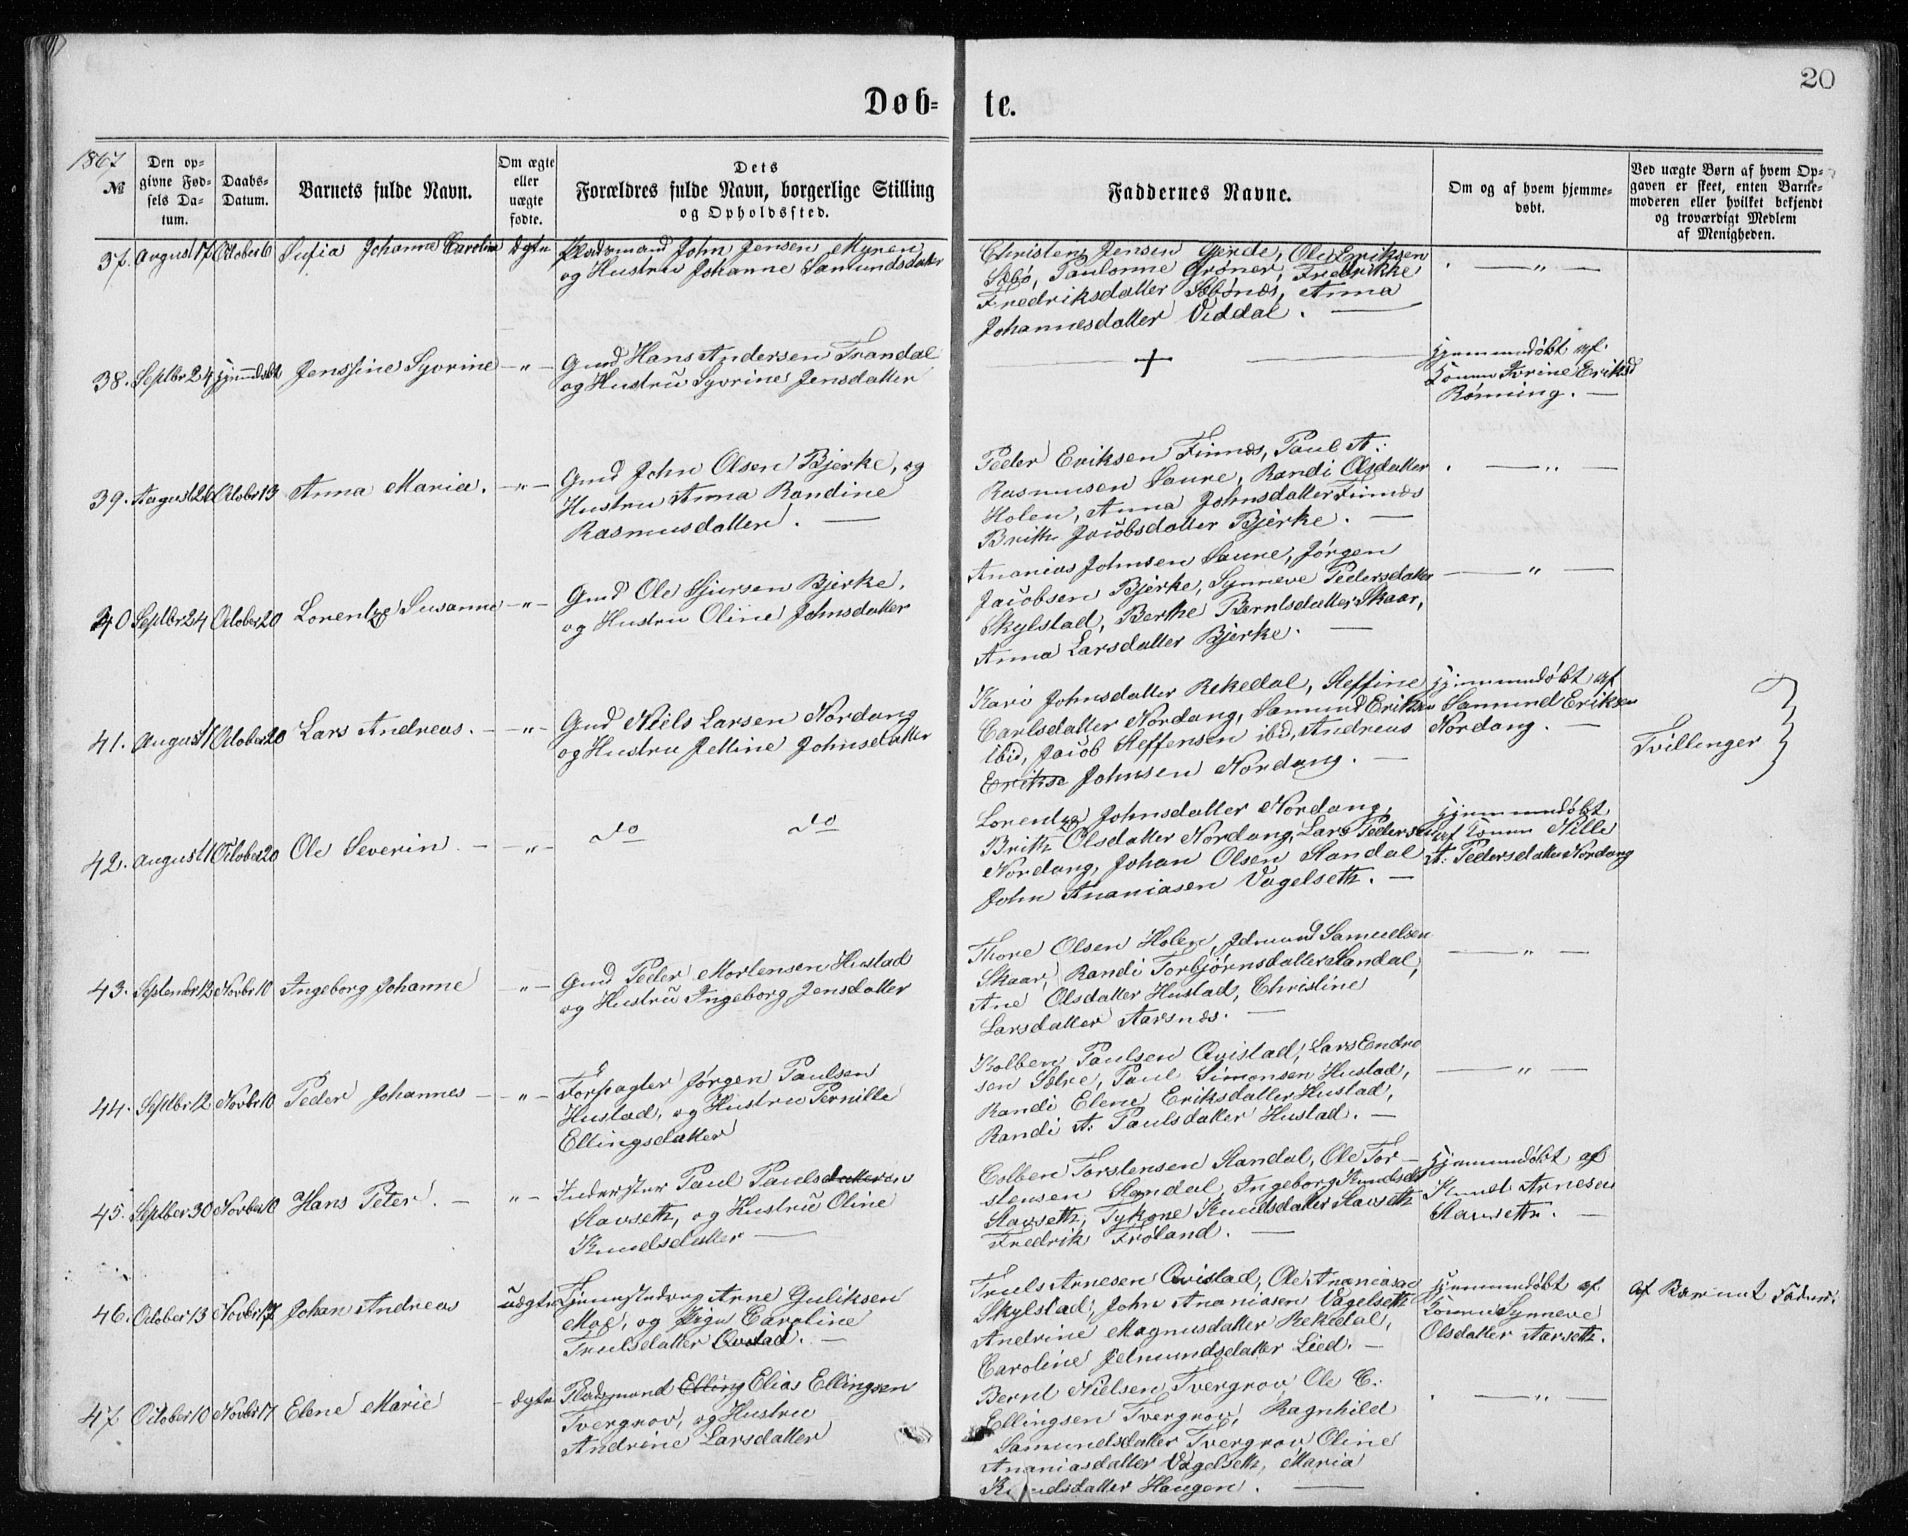 20
Døb-te.
1867
№
Den op-
givne Fød-
sels Da-
tum.
Daabs-
Datum.
Barnets fulde Navn.
Om ægte
eller
uægte
fødte.
Dets
Forældres fulde Navn, borgerlige Stilling
og Opholdssted.
Faddernes Navne.
Om og af hvem hjemme-
døbt.
Ved uægte Børn af hvem Op-
gaven er skeet, enten Barne-
moderen eller hvilket bekjendt
og troværdigt Medlem
af Menigheden.
37. August 17 October 6 Sufia Johanne Caroline ægte Pladsmand John Jensen Myren
og Hustru Johanne Samundsdatter
Christen Jensen Gjerde, Ole Eriksen
Sæbø, Paulonne Grøner, Fredrikke
Fredriksdatter Sæbønes, Anna
Johannesdatter Viddal. —
— " —
38. Septbr 24 hjemmedøbt Jenssine Syvrine — " — Gmd Hans Andersen Trandal
og Hustru Syvrine Jensdatter
— + —
hjemmedøbt af
Konen Ivrine Eriksd
Rønning. —
39. August 26 Octobr 13 Anna Maria. — " — Gmd John Olsen Bjerke, og
Hustru Anna Randine
Rasmusdatter. —
Peder Eriksen Finnes, Paul A:
Rasmusen Saure, Randi Olsdatter
Holen, Anna Johnsdatter Finnes
Brith Jacobsdatter Bjerke. —
— " —
40 Septbr 24 October 20 Lorentze Susanne — " — Gmd Ole Sjursen Bjerke,
og Hustru Oline Johnsdatter
Ananias Johnsen Saure, Jørgen
Jacobsen Bjerke, Synneve Pedersdatter
Skylstad, Berthe Berntsdatter Skaar,
Anna Larsdatter Bjerke. —
— " —
41. August 1 October 20 Lars Andreas. — " — Gmd Niels Larsen Nordang
og Hustru Jettine Johnsdatter
Kari Johnsdatter Rekedal, Steffine
Carlsdatter Nordang, Samund Eriksen
ibid, Jacob Steffensen ibd, Andreas
Erikse Johnsen Nordang. —
hjemmedøbt af
Samund Eriksen
Nordang. —
Tvillinger
42. August 1 October 20 Ole Severin — " — do do
Lorentze Johnsdatter Nordang,
Brith Olsdatter Nordang, Lars Pedersen
Nordang, Johan Olsen Standal
John Ananiasen Vagelseth. —
hjemmedøbt
af Konen Nille
A: Pedersdatter Nordang
43. Septembr 12 Novbr 10 Ingeborg Johanne " — Gmd Peder Mortensen Hustad
og Hustru Ingeborg Jensdatter
Thore Olsen Holen, Jetmund Samuelsen
Skaar, Randi Torbjørnsdatter Standal,
Ane Olsdatter Hustad, Christine
Larsdatter Aarsnes. —
— " —
44. Septbr 12 Novbr 10 Peder Johannes — " — Forpagter Jørgen Paulsen
Hustad, og Hustru Pernille
Ellingsdatter
Kolben Paulsen Qvistad, Lars Endre
sen Sætre, Paul Simonsen Hustad,
Randi Elene Eriksdatter Hustad,
Randi A: Paulsdatter Hustad. —
— " —
45. Septbr 30 Novbr 10 Hans Peter. — " — Inderster Paul Paulsdatteren
Stavseth, og Hustru Oline
Knudsdatter —
Colben Torstensen Standal, Ole Tor-
stensen Standal, Ingeborg Knudsdtr
Stavseth, Tykone Knudsdatter Stavseth
Fredrik Frøland. —
hjemmedøbt af
Knud Arnesen
Stavseth. —
46. October 13 Novbr 17 Johan Andreas uægte Tjenestedreng Arne Guliksen
Moe, og Pige Caroline
Trulsdatter Qvistad. —
Truls Arnesen Qvistad, Ole Ananiasen
Skylstad, John Ananiasen Vagelseth
Andrine Magnusdatter Rekedal,
Caroline Jetmundsdatter Lied. —
hjemmedøbt af
Konen Synneve
Olsdatter Aarseth.
af Barnets Fader.
47. October 10 Novbr 17 Elene Marie ægte Pladsmand Elling Elias Ellingsen
Tvergrov, og Hustru
Andrine Larsdatter
Bernt Nielsen Tvergrov Ole C:
Ellingsen Tvergrov, Ragnhild
Samundsdatter Tvergrov Oline
Ananiasdatter Vagelseth, Maria
Knudsdatter Haugen. —
— " —